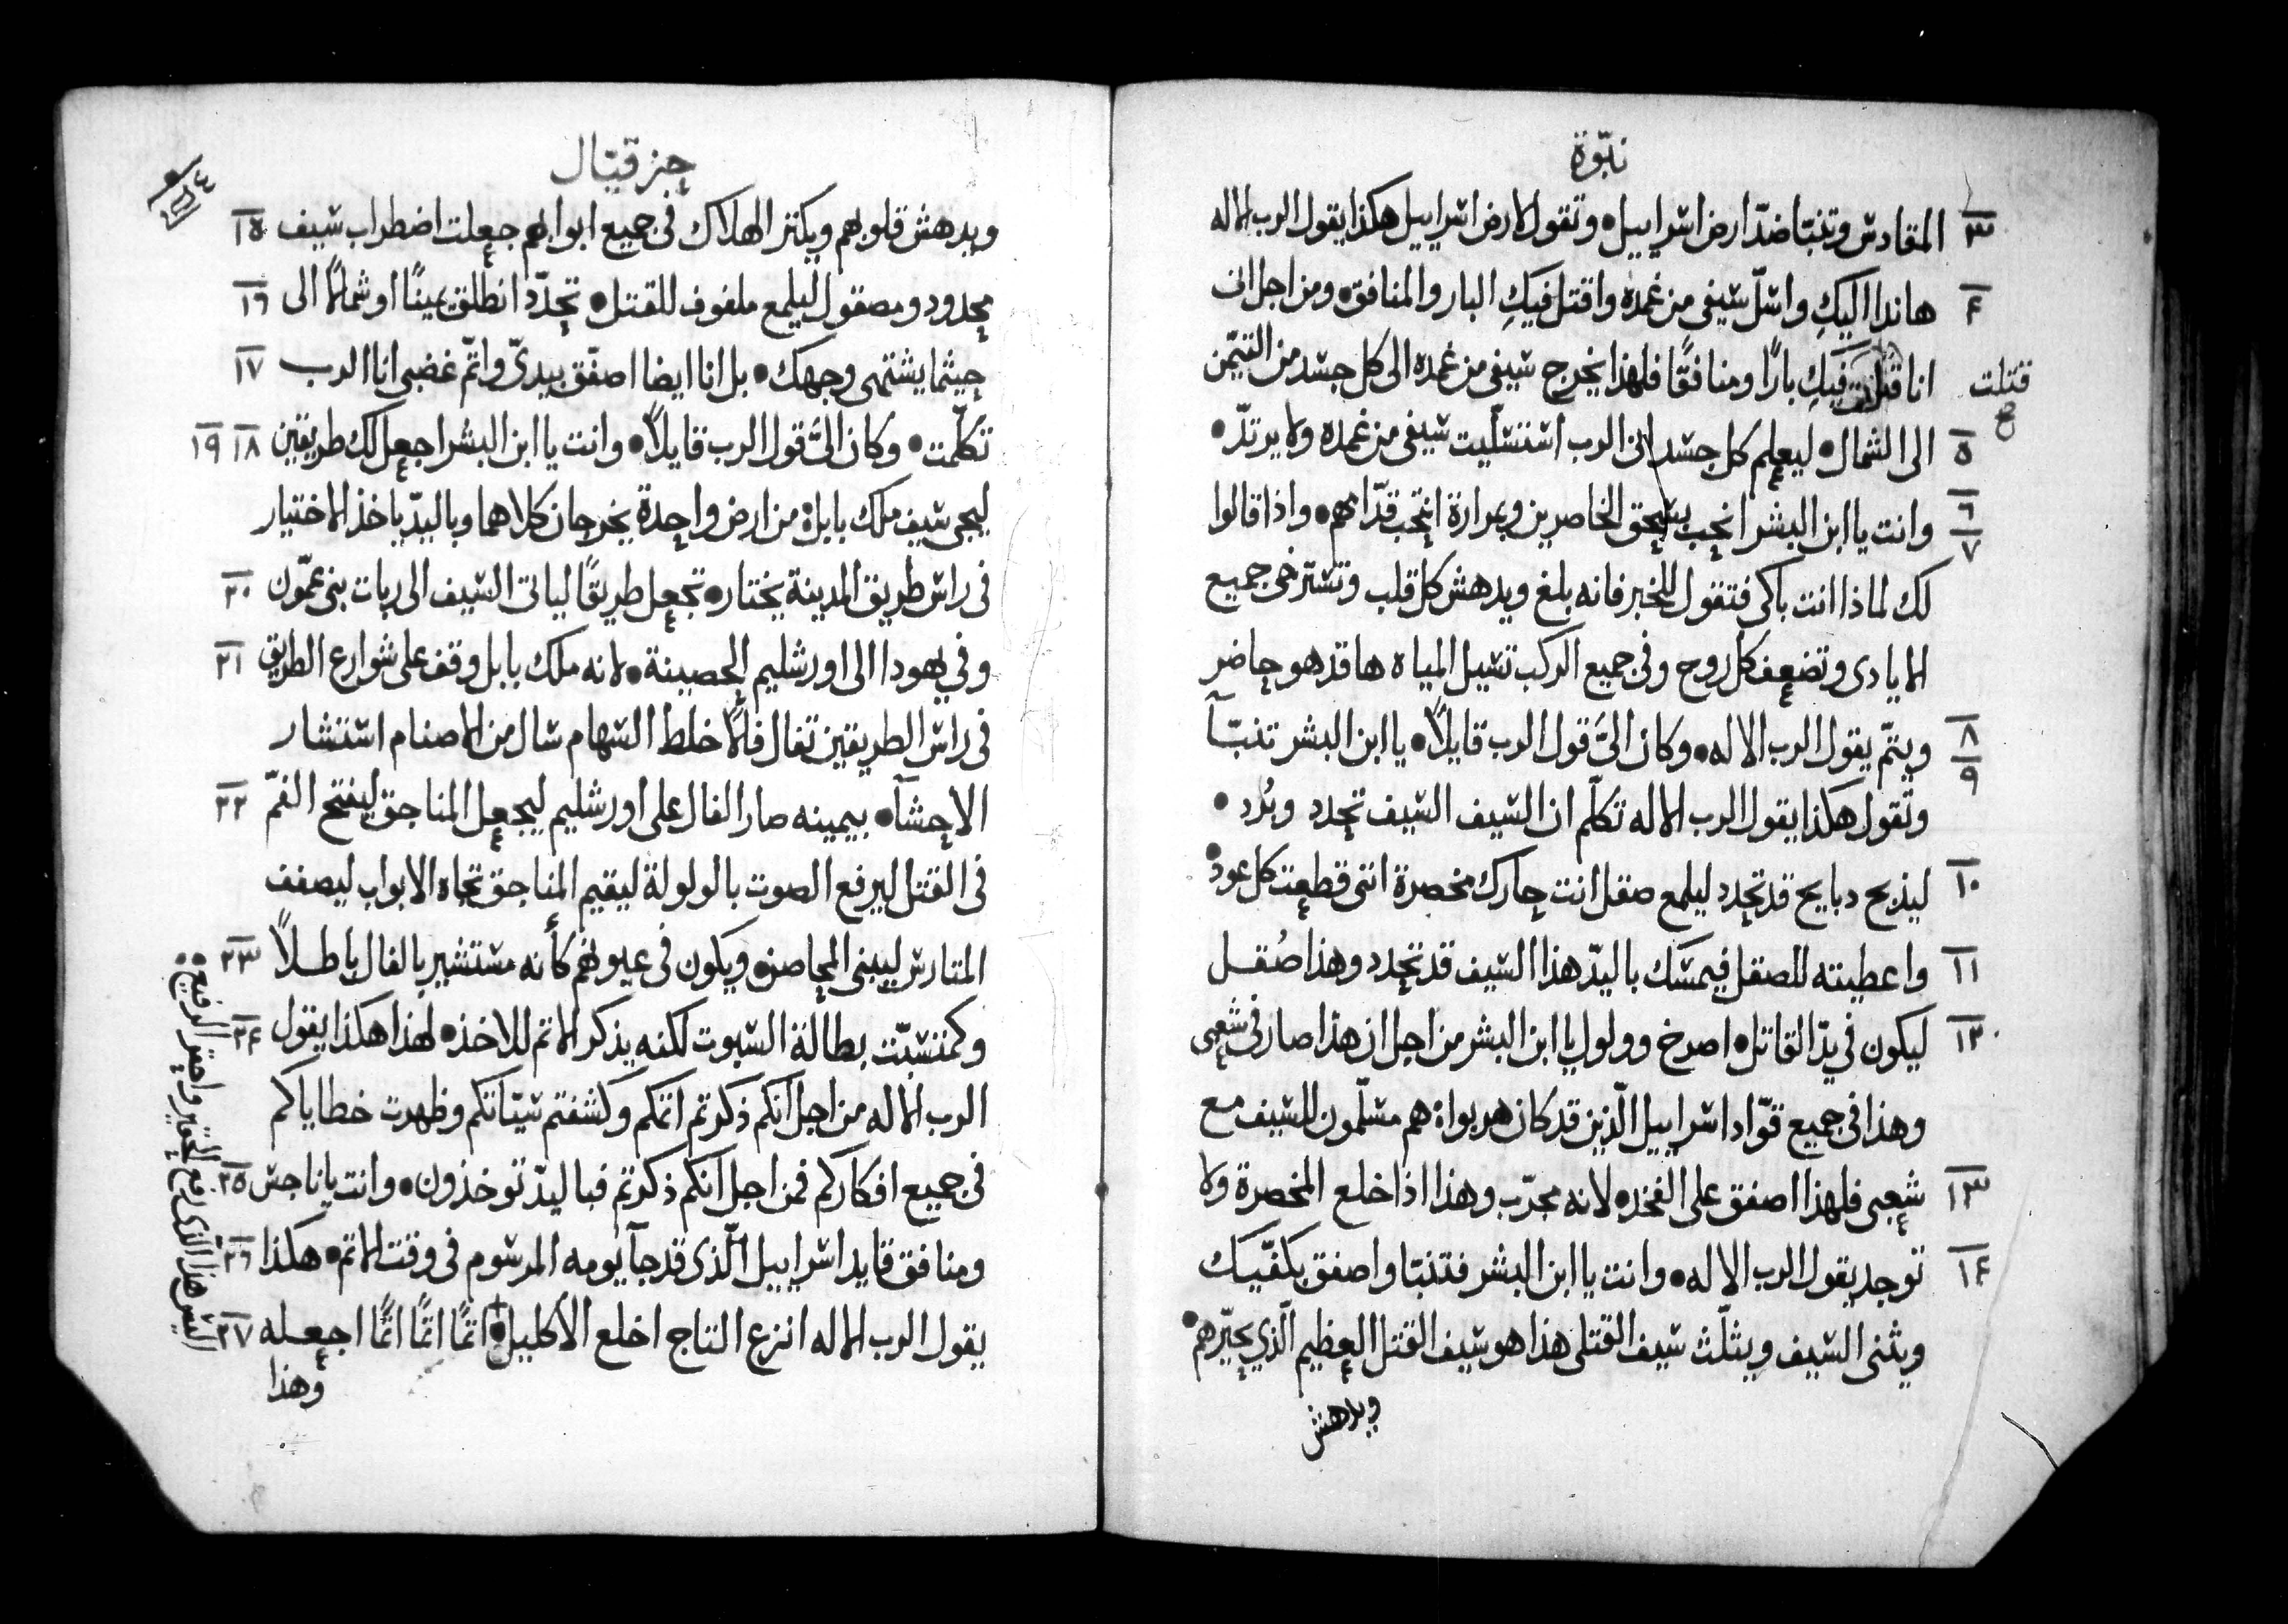 نبّوة
٣ المقادس وتنبّا ضدّ ارض اسراييل • وتقول لارض اسراييل هكذا يقول الرب الاله
٤ هانذا اليكِ واسلّ سيفى من غمده واقتل فيكِ البار والمنافق • ومن اجل انى
انا قتلت فيكِ بارًا ومنافقًا فلهذا يخرج سيفى من غمده الى كل جسد من التيّمن
قتلت
٥ الى الشمال • ليعلم كل جسد انى الرب استسلّيت سيفى من غمده ولا يرتدّ •
٦ ٧ وانت يا ابن البشر انحب بسحق الخاصرين وبمرارة انتحب قدّامهم • واذا قالوا
لك لماذا انت باكى فتقول للخبر فانه بلغ ويدهش كل قلب وتسترخى جميع
الايادى وتضعف كل روح وفى جميع الركب تسيل المياه ها قد هو حاضر
٨ ويتمّ يقول الرب الاله • وكان الىّ قول الرب قايلاً • يا ابن البشر تنبّآ
٩ وتقول هكذا يقول الرب الاله تكلّم ان السيف السيف تحدد وبُرد •
١٠ ليذبح دبايح قد تحدد ليلمع صقل انت حارك مخصرة ابنى قطعت كل عود •
١١ واعطيته للصقل فيمسك باليدّ هذا السيف قد تحدد وهذا صُقل
١٢ ليكون فى يدّ القاتل • اصرخ وولول يا ابن البشر من اجل ان هذا صار فى شعبى
وهذا فى جميع قوّاد اسراييل الّذين قد كان هربوا • هم مسلّمون للسيف مع
١٣ شعبى فلهذا اصفق على الفخذ • لانه مجرّب وهذا اذا خلع المخصرة ولا
١٤ توجد يقول الرب الاله • وانت يا ابن البشر فتنبّا واصفق بكفّيك
ويثنى السيف ويثلّث سيف القتلى هذا هو سيف القتل العظيم الّذي يحيّرهم •
ويدهش
حزقيّال
ويدهش قلوبهم ويكثر الهلاك فى جميع ابوابهم جعلت اضطراب سيف ١٥
محدود ومصقول ليلمع ملفوف للقتل • تحدّد انطلق يمينًا او شمالاً الى ١٦
حيثما يشتهى وجهك • بل انا ايضا اصفّق بيديّ واتمّ غضبى انا الرب ١٧
تكلّمت • وكان الىّ قول الرب قايلاً • وانت يا ابن البشر اجعل لك طريقين ١٨ ١٩
ليجى سيف ملك بابل • من ارض واحدة يخرجان كلاهما وباليدّ ياخذ الاختيار
فى راس طريق المدينة يختار • تجعل طريقًا لياتى السيف الى ربات بنى عمّون ٢٠
وفي يهودا الى اورشليم الحصينة • لانه ملك بابل وقف على شوارع الطريق ٢١
فى راس الطريقين تفال فالاً خلط السهام سال من الاصنام استشار
الاحشآ • بيمينه صار الفال على اورشليم ليجعل المناجق ليفتح الفمّ ٢٢
فى القتل ليرفع الصوت بالولولة ليقيم المناجق تجاه الابواب ليصفف
المتارس ليبنى المحاصن • ويكون فى عيونهم كأنه مستشير بالفال باطلاً ٢٣
وكمتسبّت بطالة السبوت لكنه يذكر الاثم للاخذ • لهذا هكذا يقول ٢٤
الرب الاله من اجل انكم ذكرتم اثمكم وكشفتم سيّاتكم وظهرت خطاياكم
فى جميع افكاركم فمن اجل انكم ذكرتم فباليدّ توخذون • وانت يا ناجس ٢٥
ومنافق قايد اسراييل الّذى قد جآ يومه المرسوم فى وقت الاثم • هكذا ٢٦
يقول الرب الاله انزع التاج اخلع الاكليل • اثمًا اثمًا اثمًا اجعله ٢٧
وهذا
اليس هذا الذى رفع الحقير واحقر الرفيع •